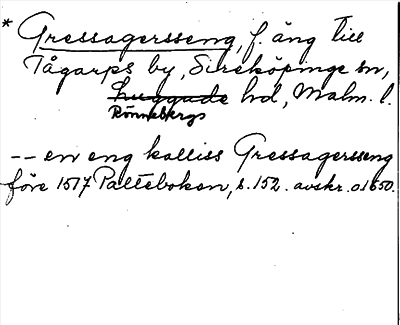 * Gressagersseng, f. äng till
Tågarps by, Sireköpinge sn,
Luggude hd, Malm. l.
Rönnebergs
-- en eng kalliss Gressagersseng
före 1517 Paltebokon, s. 152. avskr. o 1650.